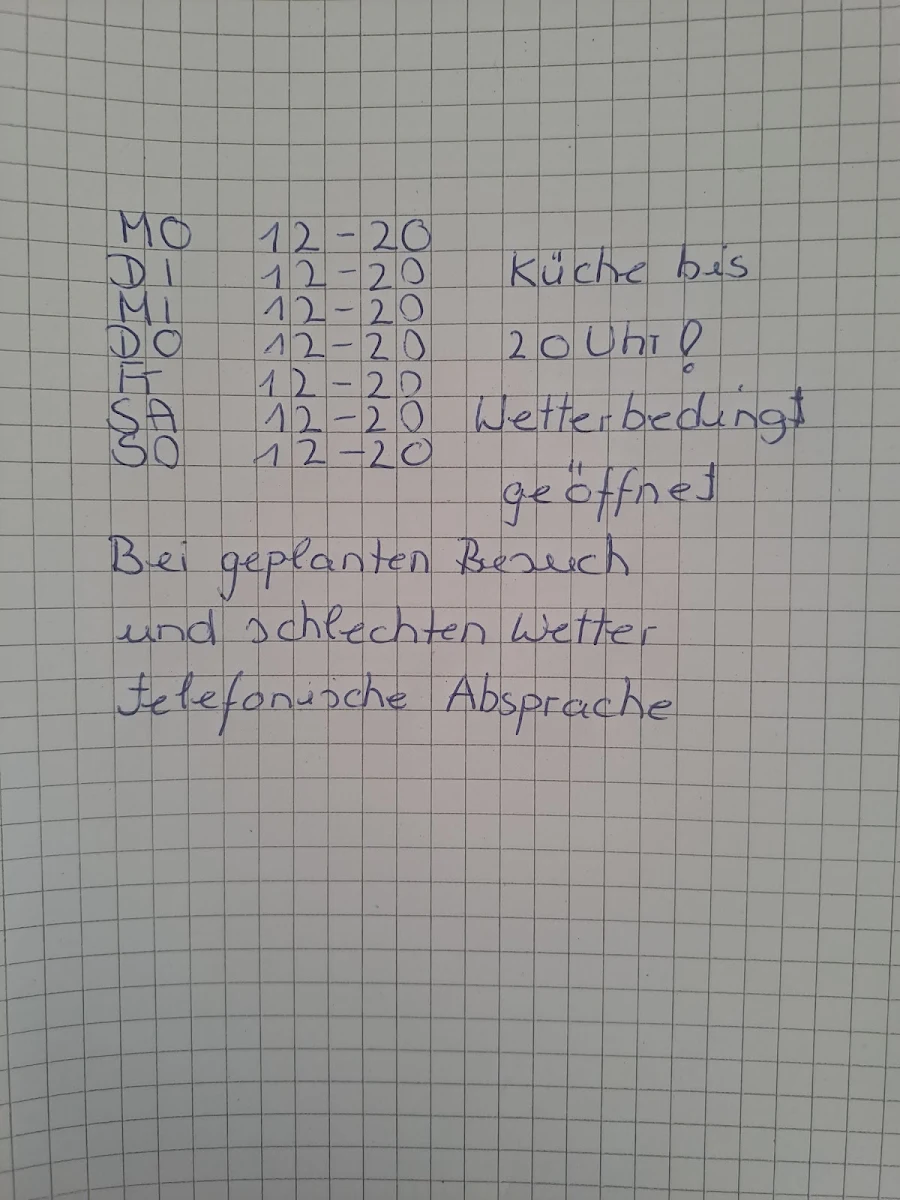 MO 12-20
DI 12-20
Küche bis
MI 12-20
DO 12-20
20 Uhr!
Fr 12-20
SA 12-20
Wetterbedingt
SO 12-20
geöffnet
Bei geplanten Besuch
und schlechten Wetter
telefonische Absprache